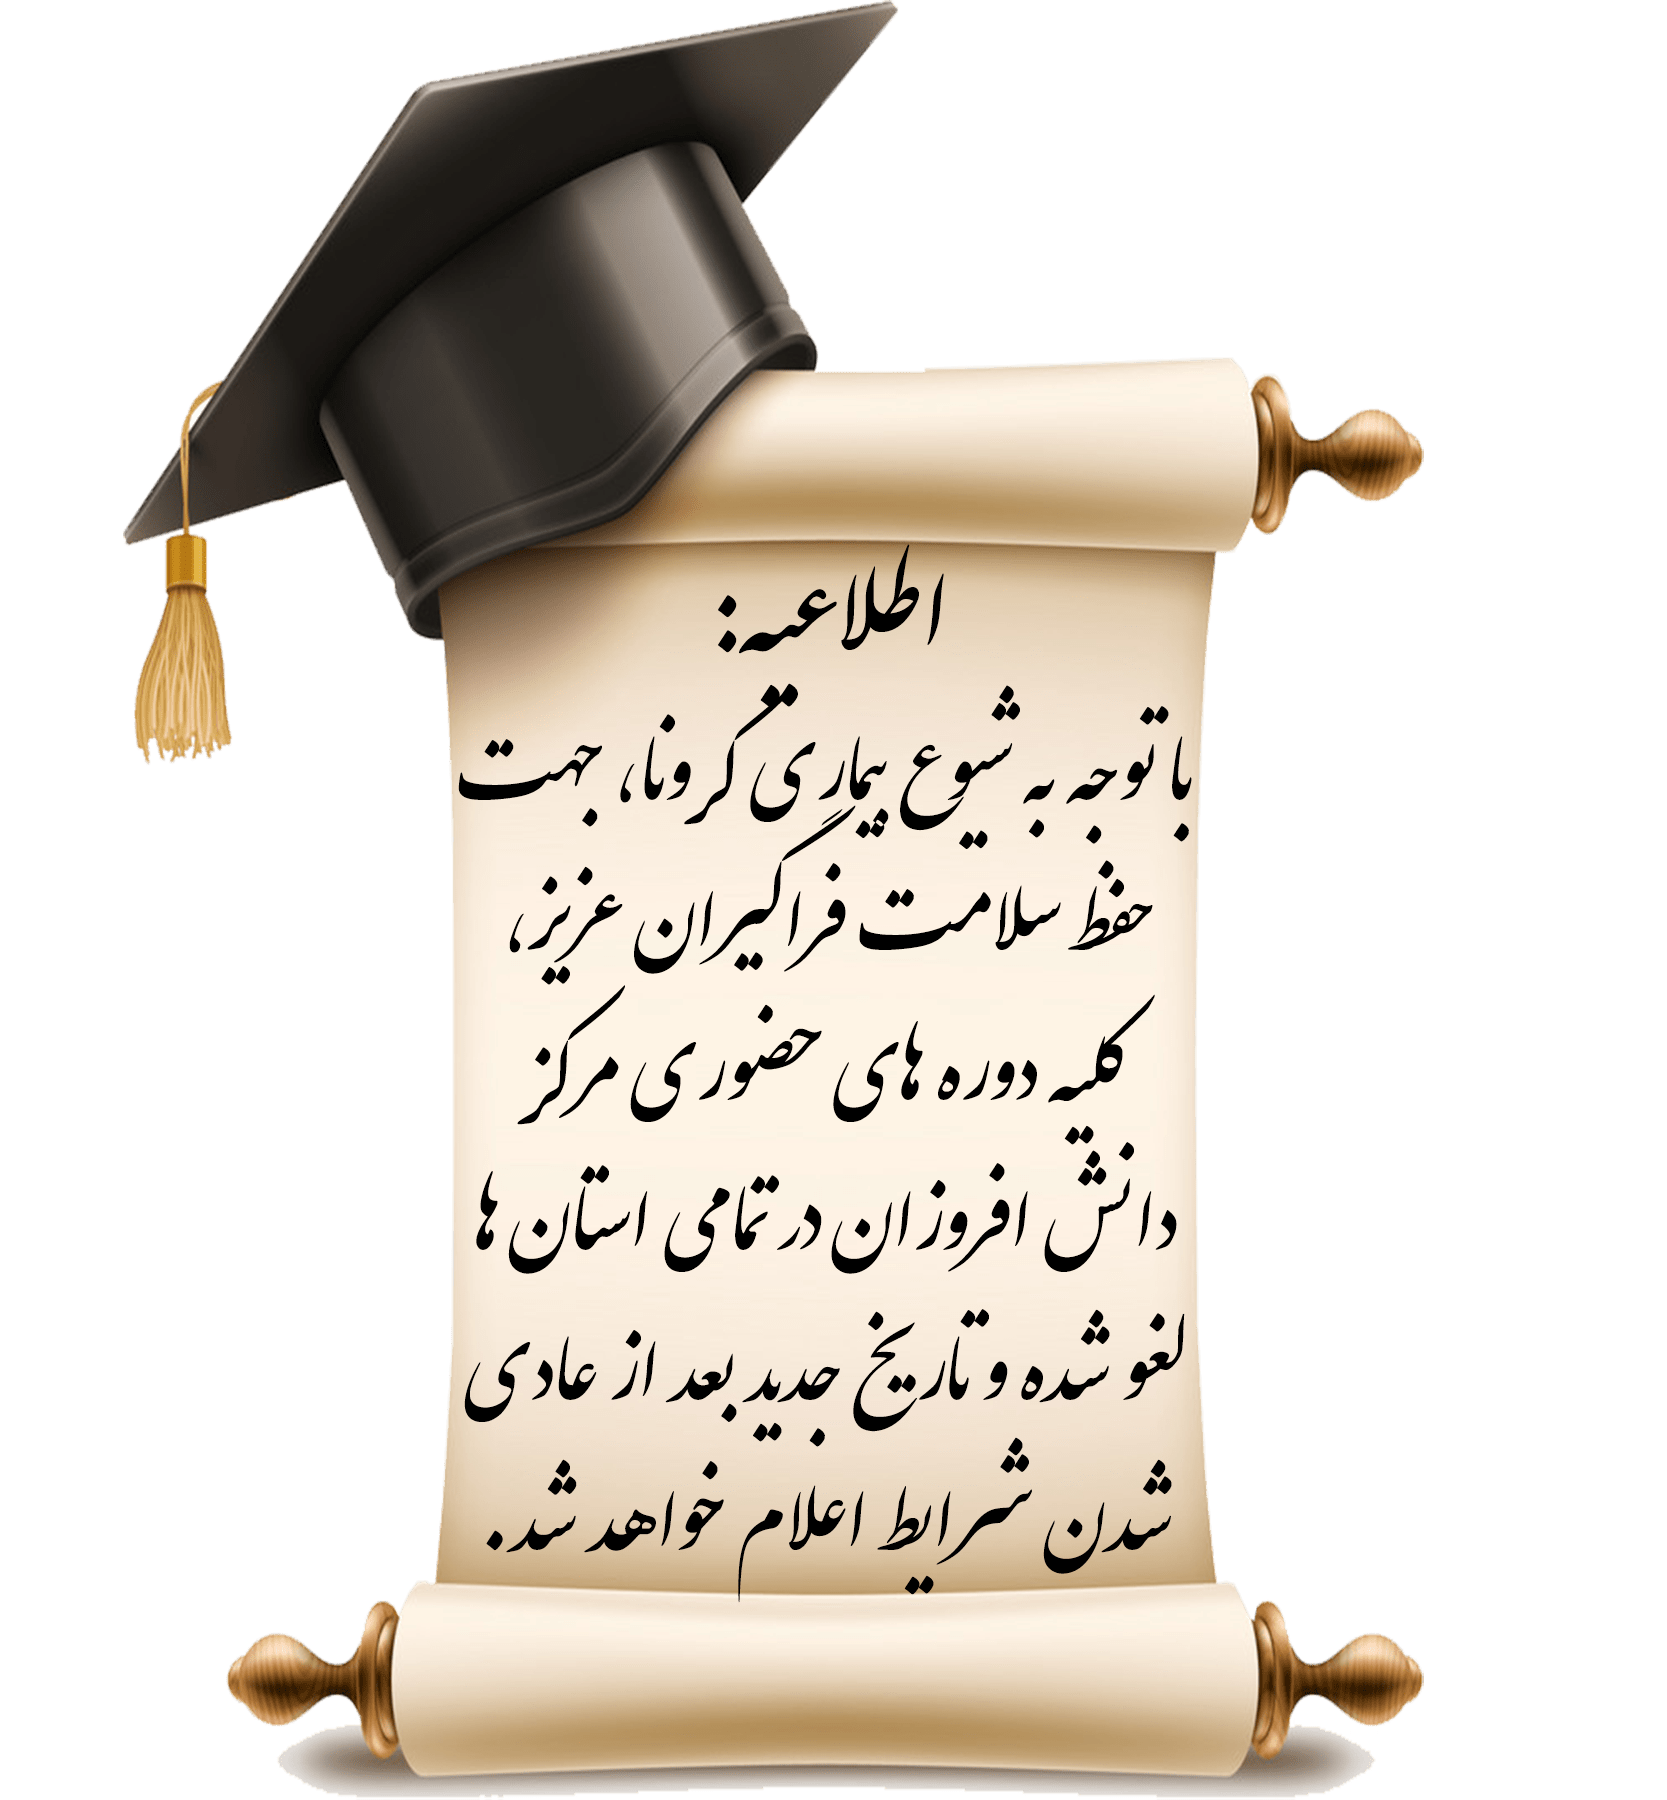 اطلاعیه:
با توجه به شیوع بیماری کرونا، جهت
حفظ سلامت فراگیران عزیز،
کلیه دوره های حضوری مرکز
دانش افروزان در تمامی استان ها
لغو شده و تاریخ جدید بعد از عادی
شدن شرایط اعلام خواهد شد.